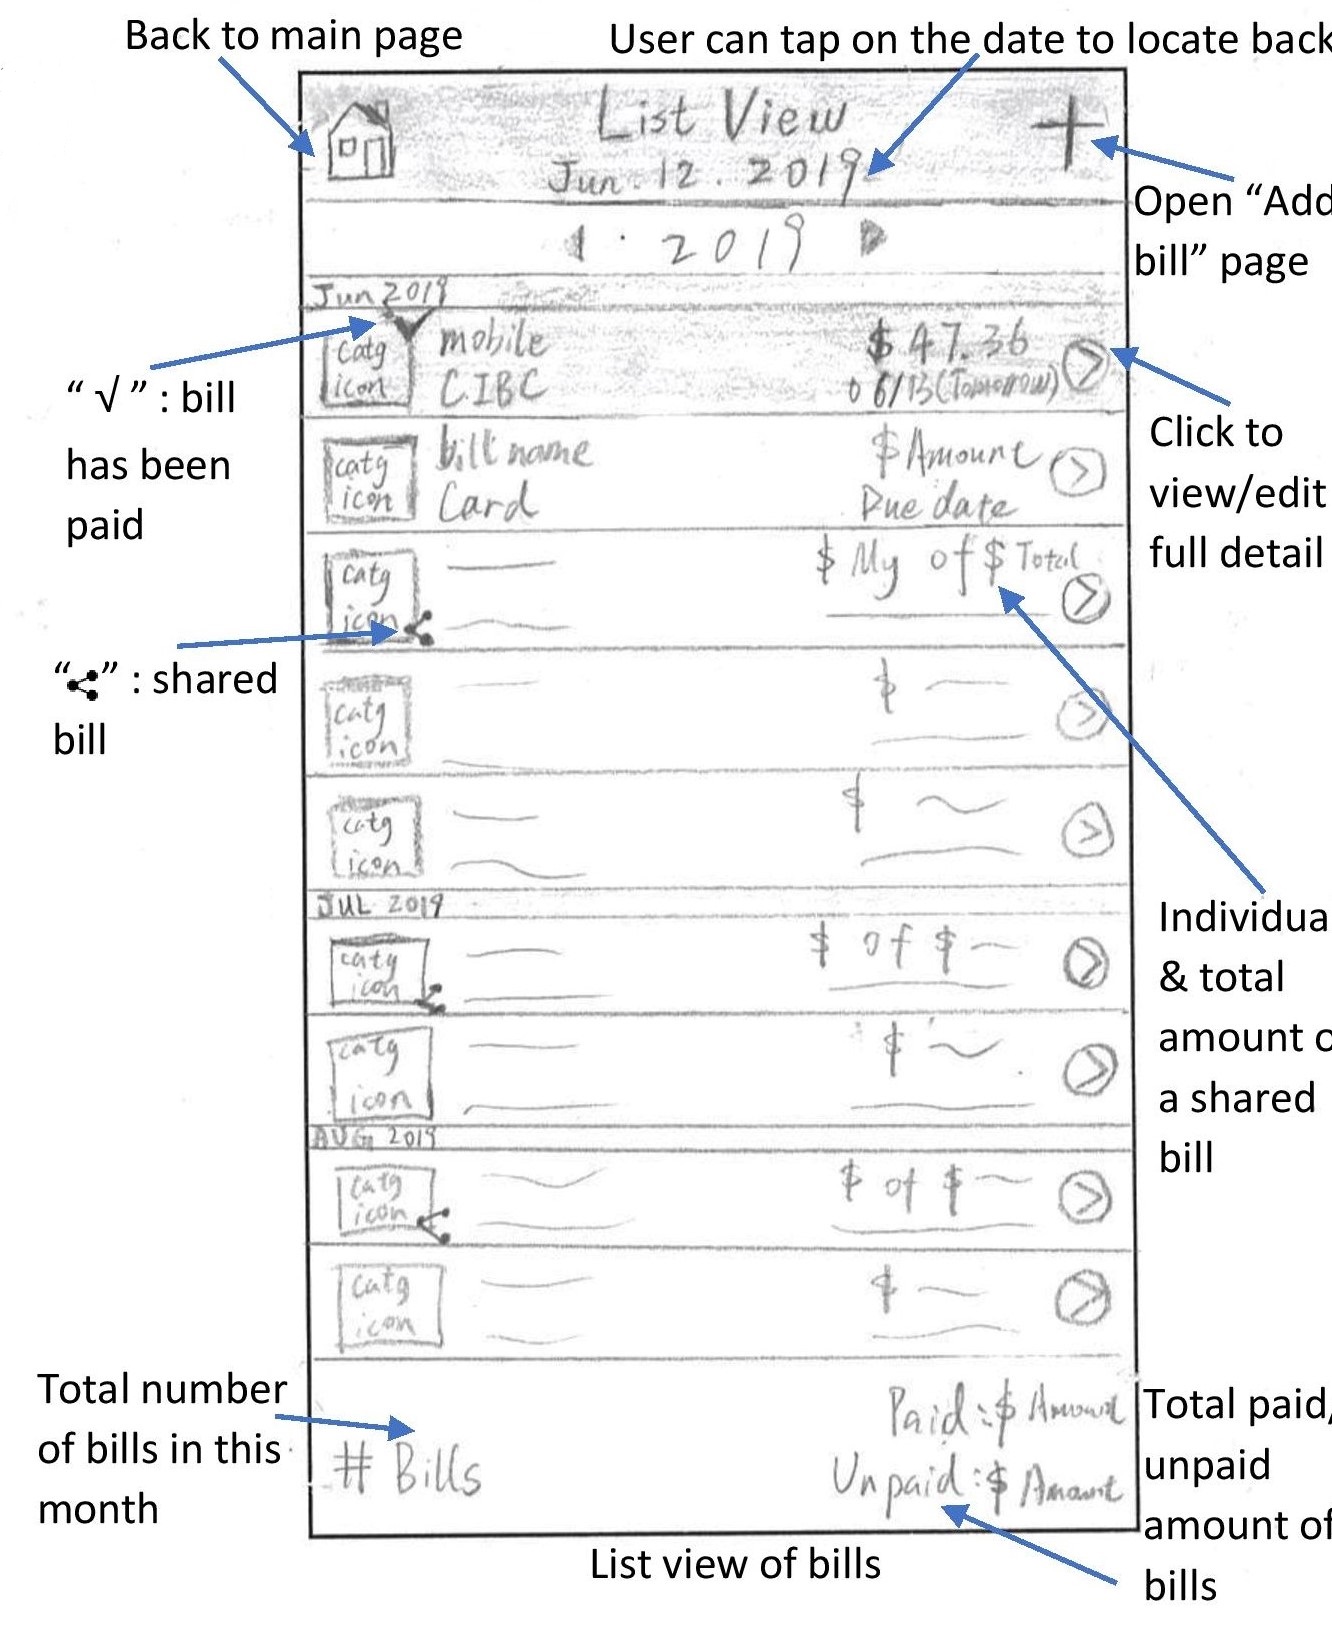 Back to main page
User can tap on the date to locate back
List View
Jun. 12. 2019
Open “Add
bill” page
2019
Jun 2019
“ √ ” : bill
has been
paid
catg
icon
mobile
CIBC
$ 47.36
06/13 (Tomorrow)
Click to
view/edit
full detail
catg
icon
bill name
Card
$ Amount
Due date
catg
icon
$ My of $ Total
“ ” : shared
bill
catg
icon
$
catg
icon
$
JUL 2019
catg
icon
$ of $
Individua
& total
amount o
a shared
bill
catg
icon
$
AUG 2019
catg
icon
$ of $
catg
icon
$
Total number
of bills in this
month
# Bills
Paid : $ Amount
Unpaid : $ Amount
Total paid,
unpaid
amount of
bills
List view of bills